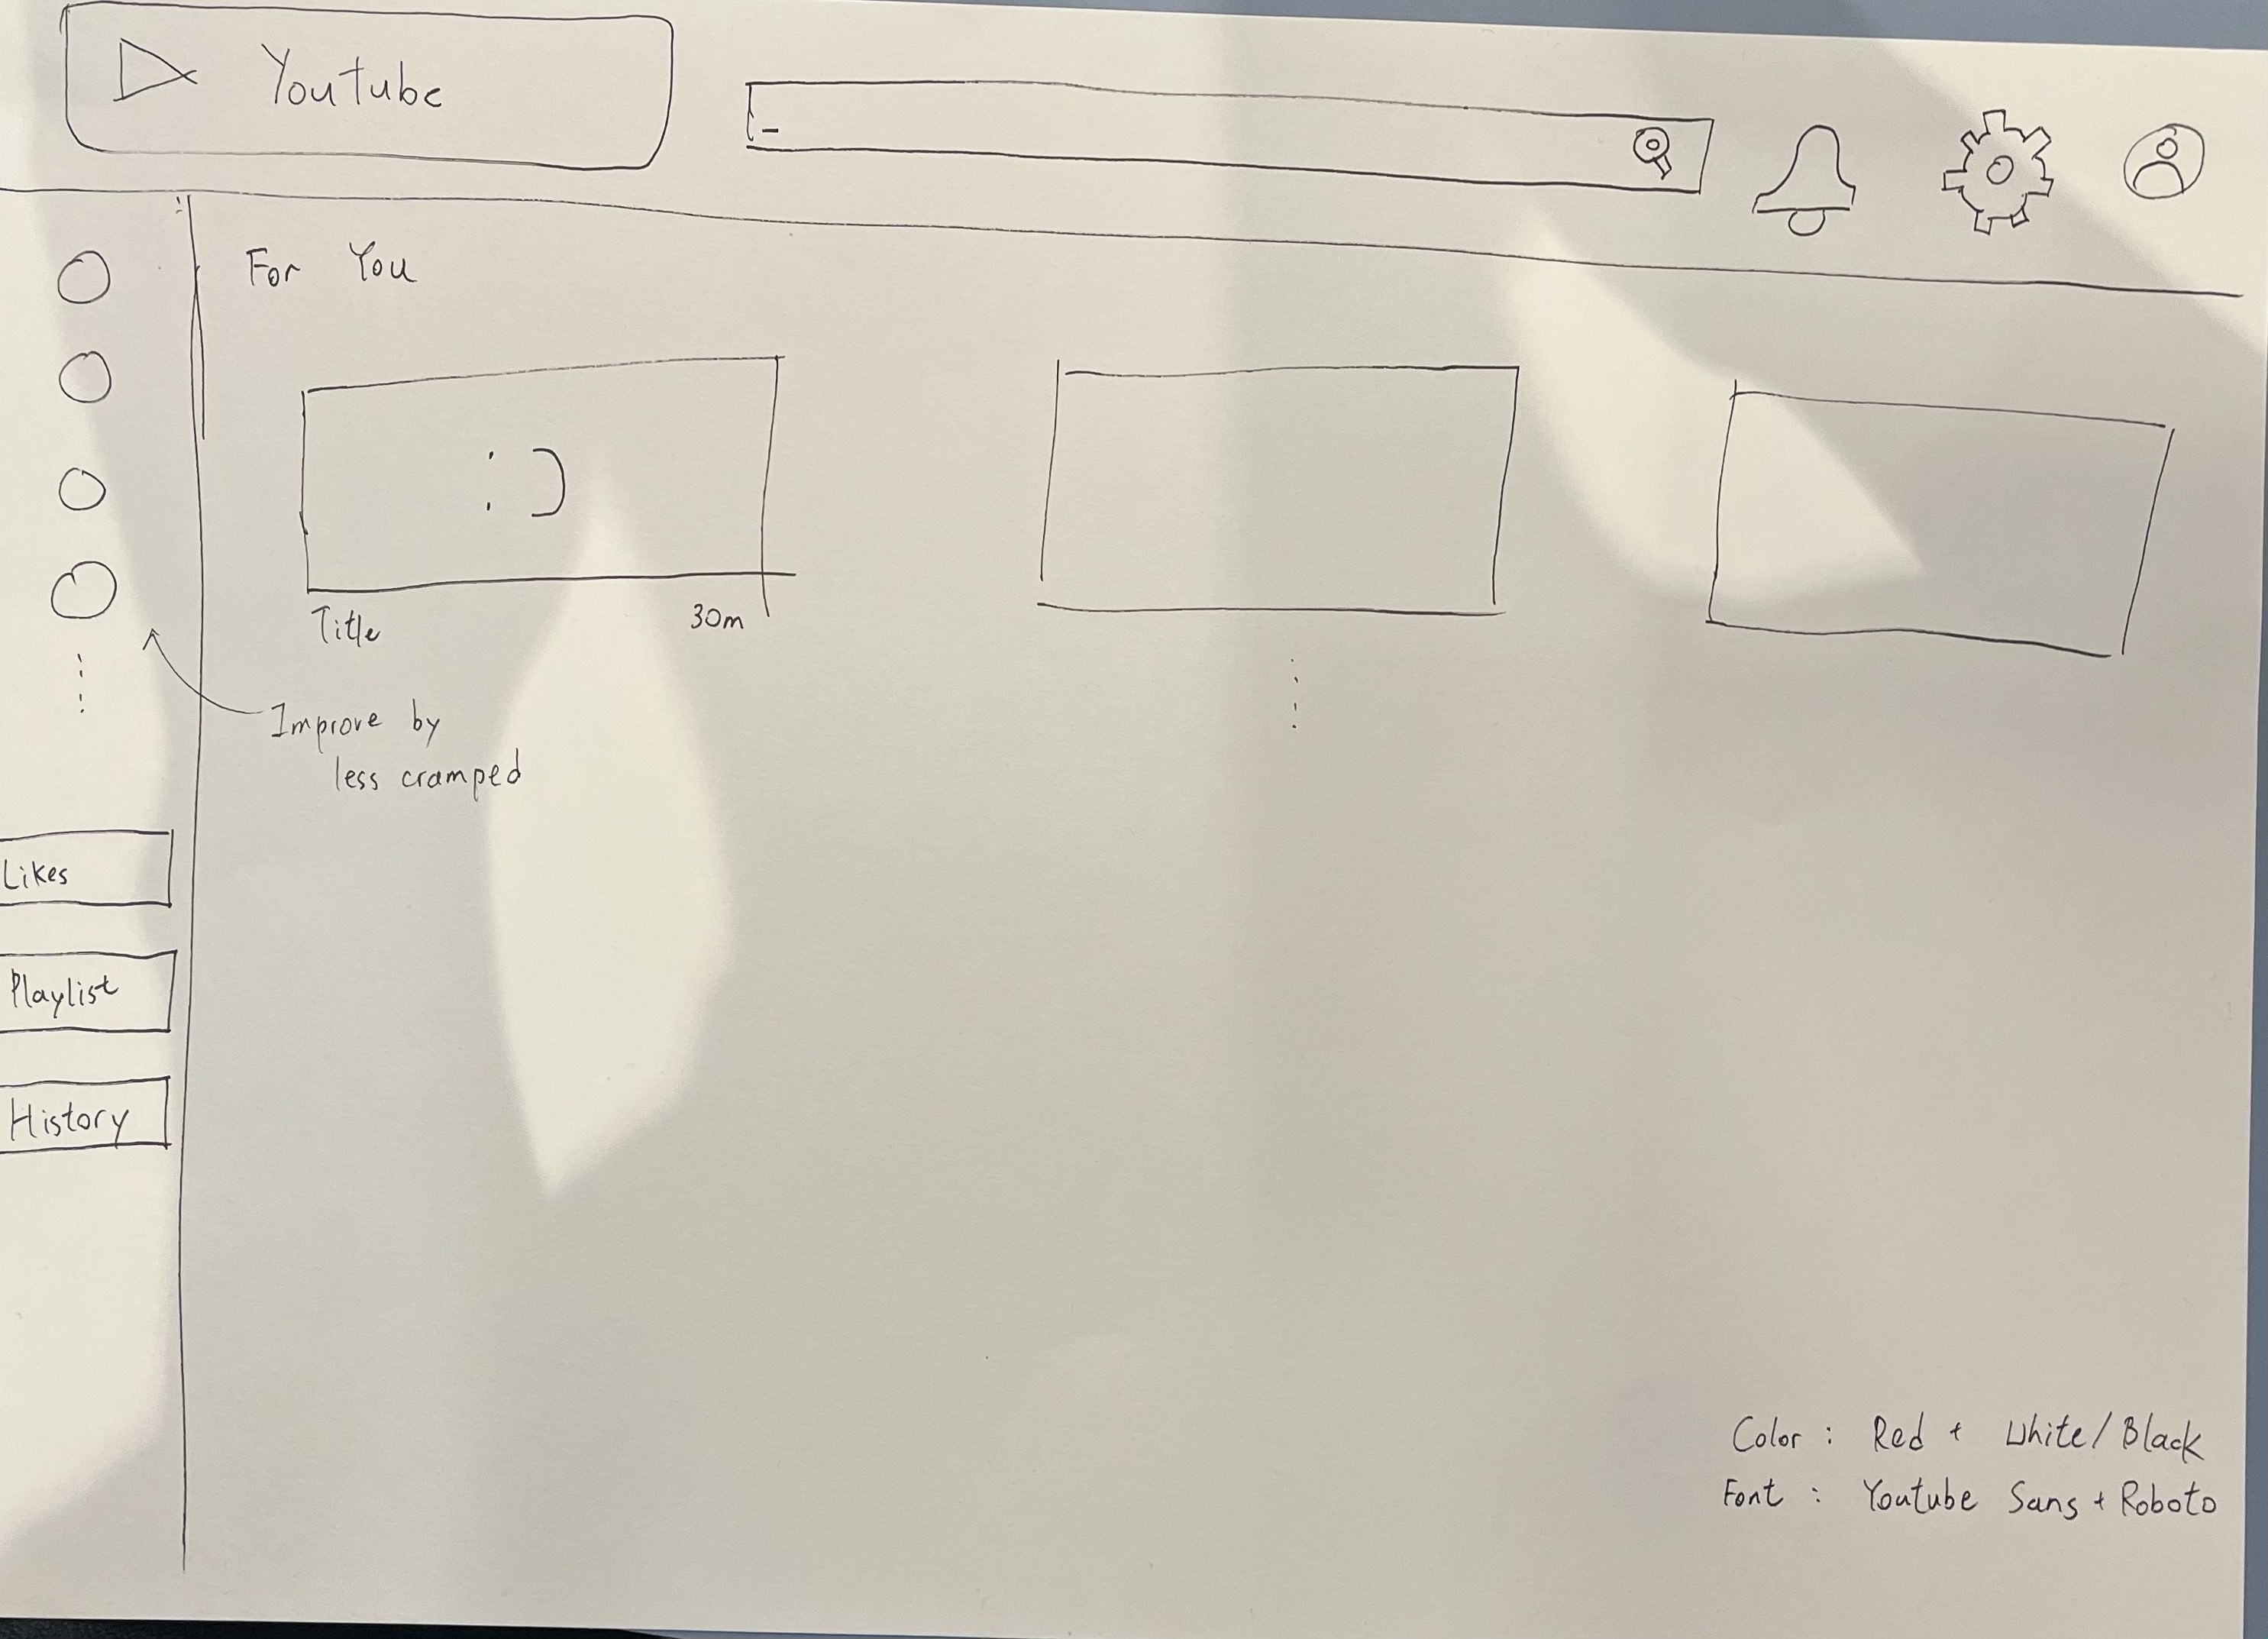 Youtube
For You
:)
Title 30m
Improve by
less cramped
Likes
Playlist
History
Color : Red + White/Black
Font : Youtube Sans + Roboto